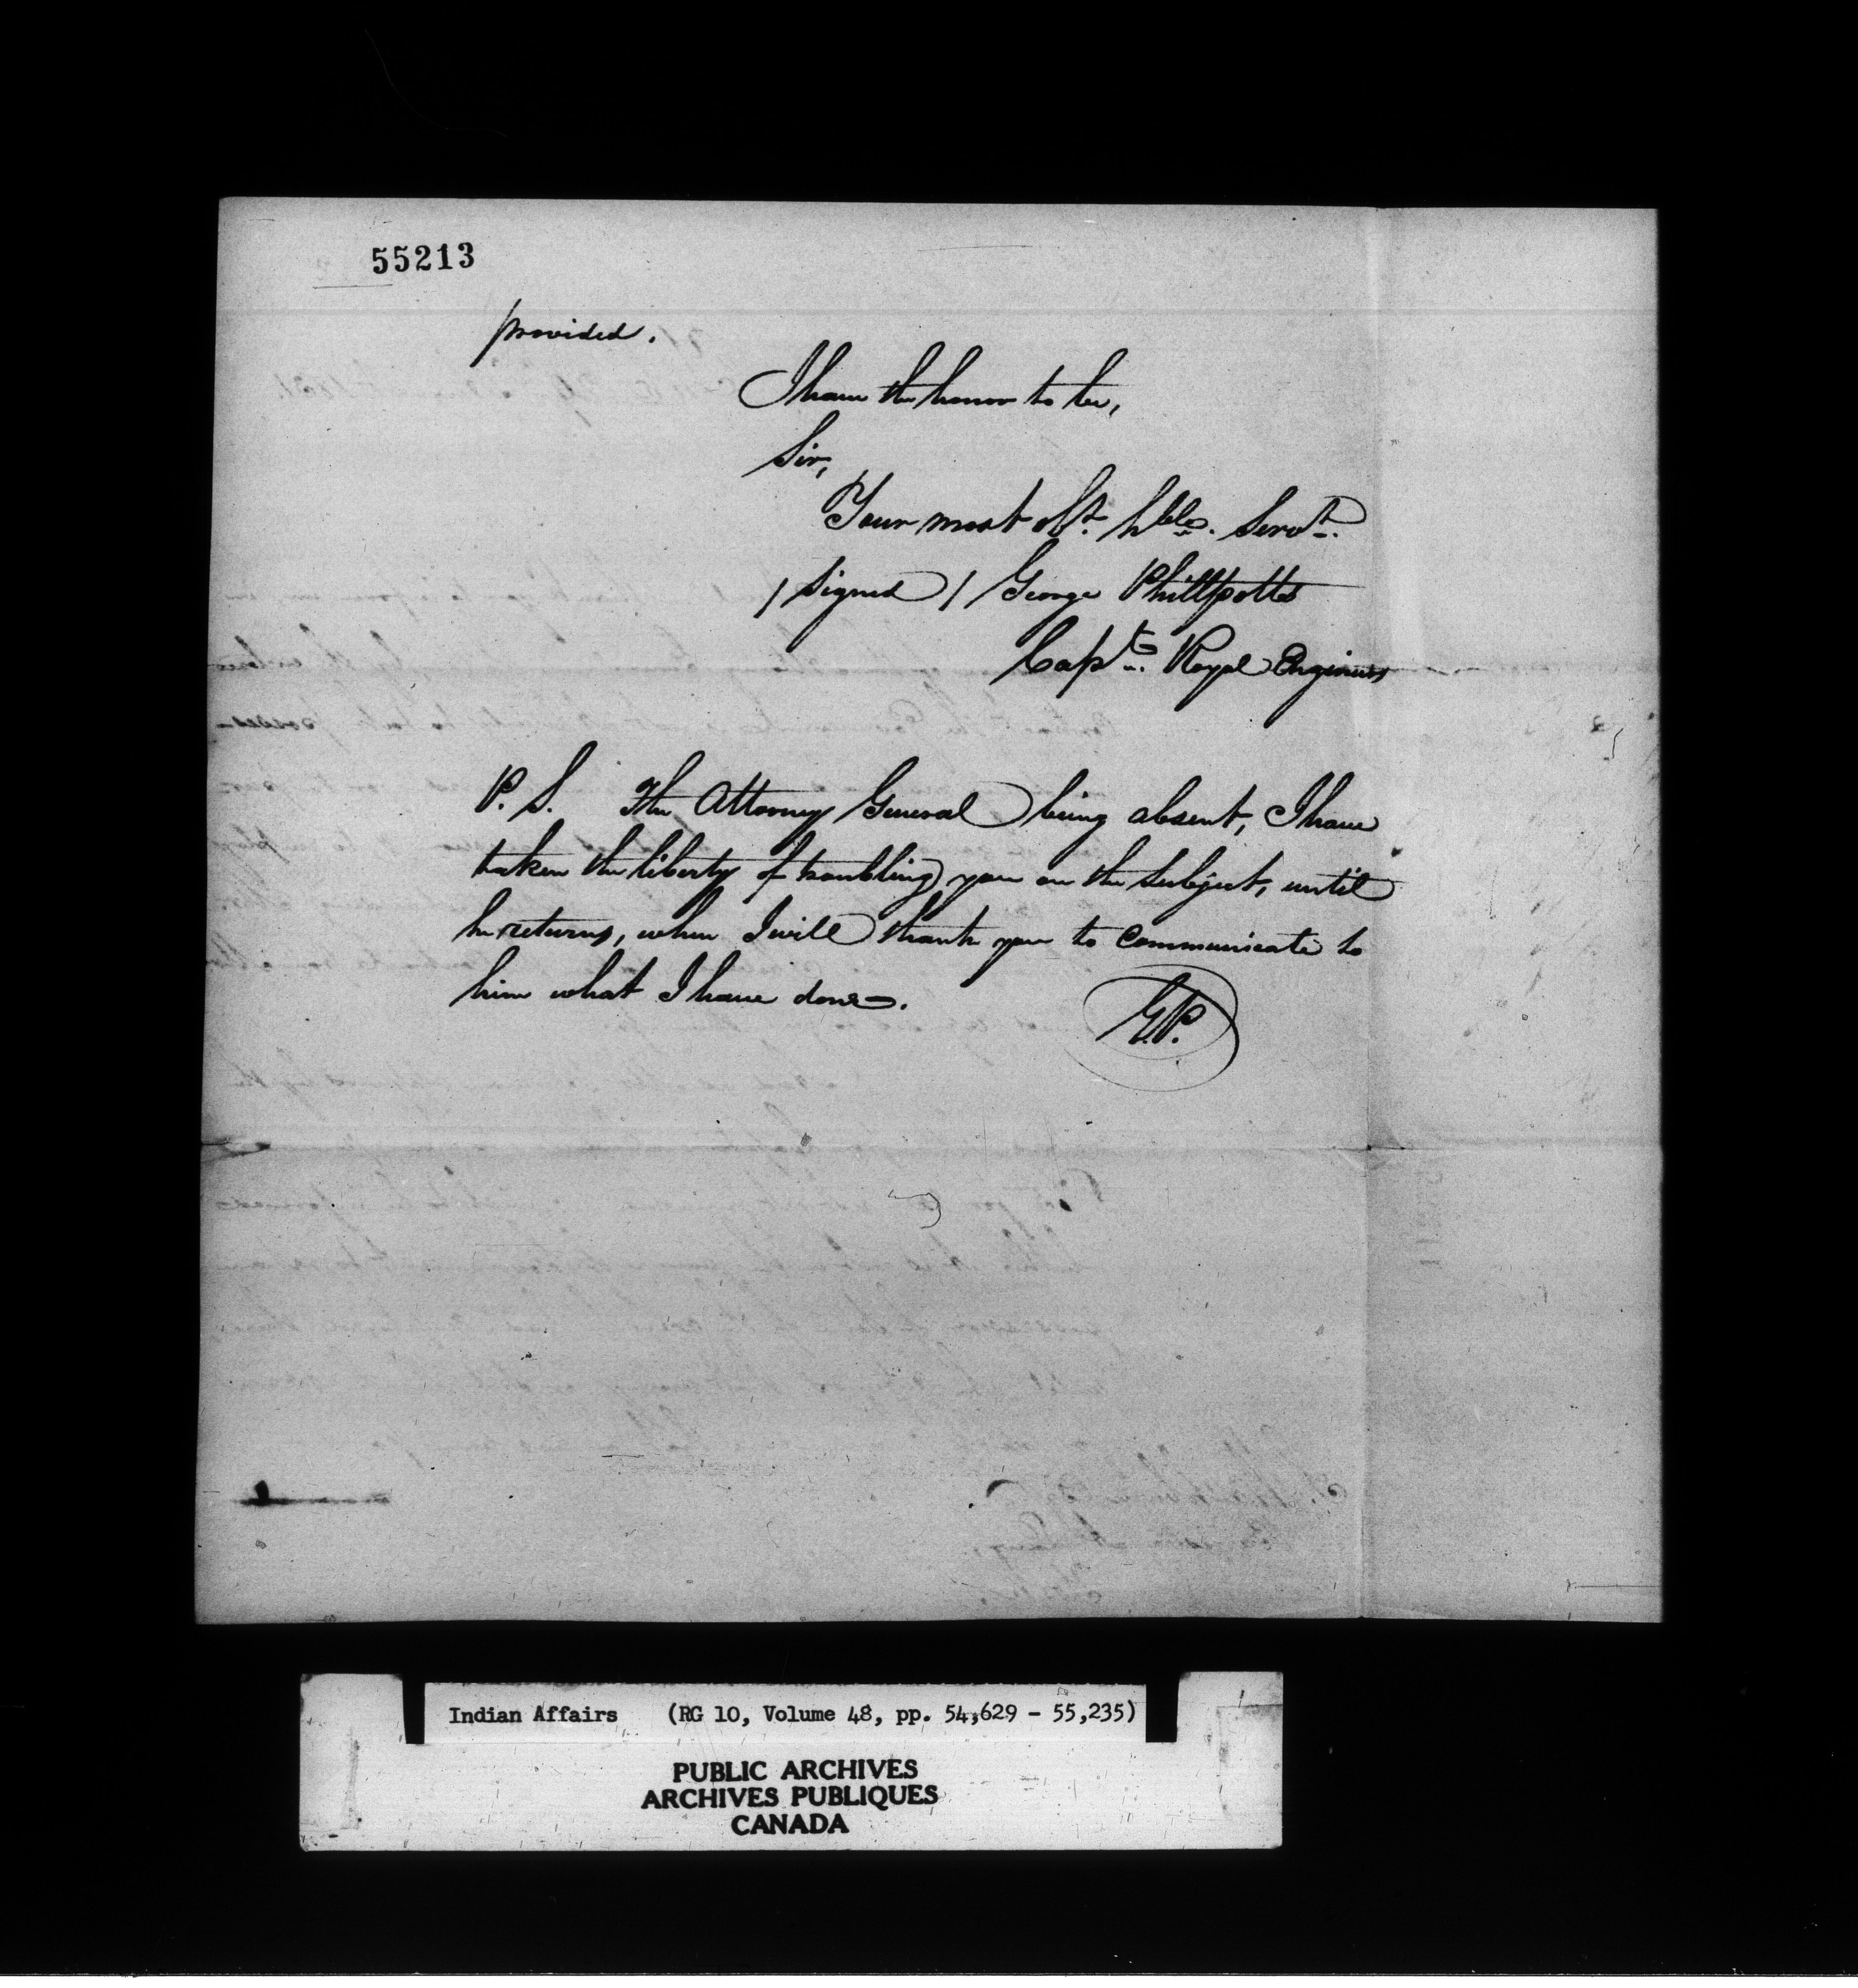 55213
provided.
I have the honor to be,
Sir,
Your most obt. hble. Servt.
/ signed / George Phillpotts
Captn. Royal Engineers
P. S. The Attorney General being absent, I have
taken the liberty of troubling you on the subject, until
he returns, when I will thank you to communicate to
him what I have done.
G.P.
Indian Affairs (RG 10, Volume 48, pp. 54,629 - 55,235)
PUBLIC ARCHIVES
ARCHIVES PUBLIQUES
CANADA